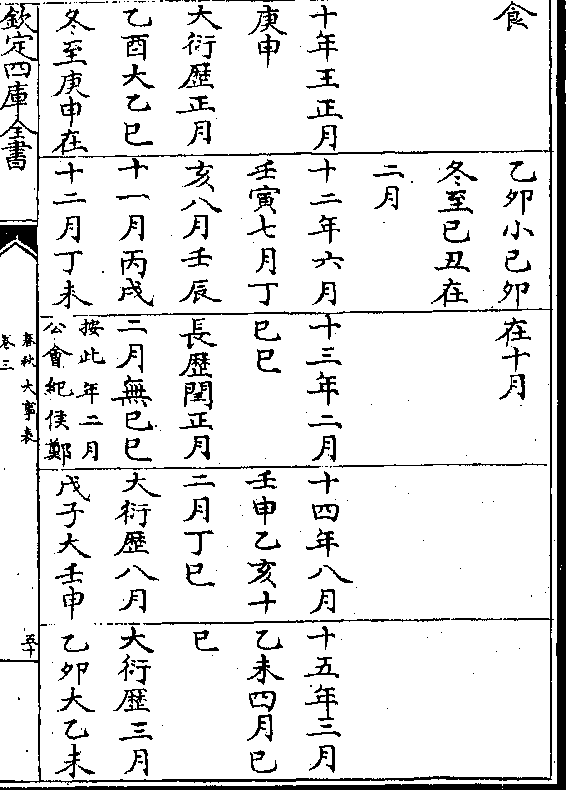 食
十年王正月
庚申
大衍歷正月
乙酉大乙巳
冬至庚申在
乙卯小己卯
冬至己丑在
二月
十二年六月
壬寅七月丁
亥八月壬辰
十一月丙戌
十二月丁未
在十月
十三年二月
己巳
長歷閏正月
二月無己巳
按此年二月
公會紀侯鄭
十四年八月
壬申乙亥十
二月丁巳
大衍歷八月
戊子大壬申
十五年三月
乙未四月己
巳
大衍歷三月
乙卯大乙未
欽定四庫全書
春秋大事表
卷三
五十